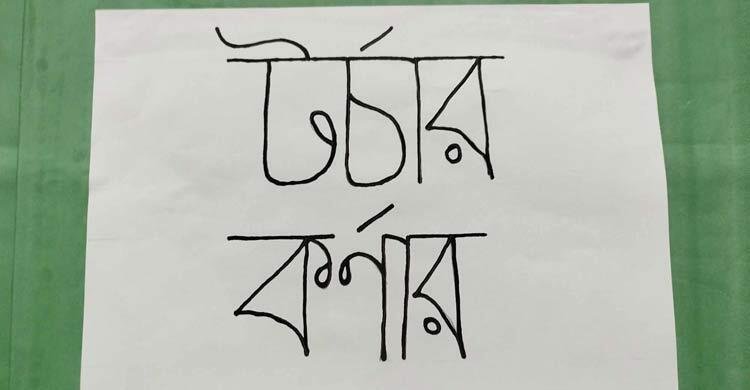 টর্চার
কর্ণার